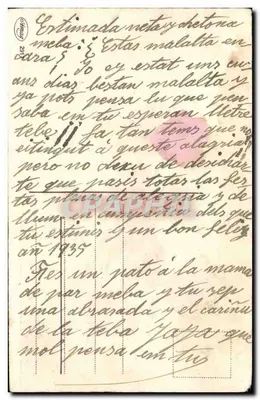 Estimada neta y chetona
meba: ¿Estás malalta en
cara? Yo ey estat uns cu
ans dias bestan malalta y
ya pots pensa lu que pen
saba en tu esperan lletre
tebe!!! fa tan tems que no
e tingut á queste alagria
pero no dexu de desicha
te que pasis totas las fes
tas
llum en cumpania dels que
tu estimes y un bon felis
añ 1935
Fes un pató á la mama
de par meba y tu rep
una abrasada y el cariñu
de la teba YaYa que
mol pensa em tu